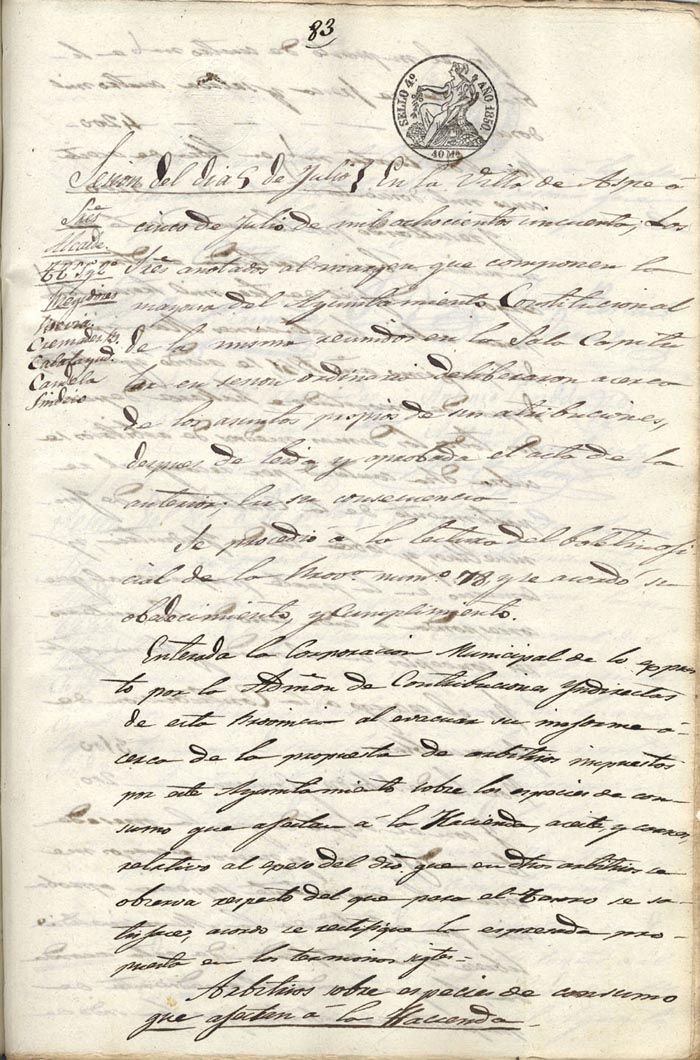 83
SELLO 4º AÑO 1850.
40 Ms
Sesion del dia 5 de Julio } En la Villa de Aspe á
Sres
Alcade.
Ttes 1º y 2º
Regidores
Cremades
Calatayud.
Candela
Sindico
cinco de Julio de mil ochocientos cincuenta; Los
Sres anotados al margen que componen la
mayoria del Ayuntamiento Constitucional
de la misma reunidos en la Sala Capitu
lar en sesion ordinaria deliberaron acerca
de los asuntos propios de sus atribuciones,
despues de leida y aprobada el acta de la
anterior; En su consecuencia
Se procedió á la lectura del boletin ofi
cial de la Provª numº 78 y se acordó su
obedecimiento, y cumplimiento.
Enterada la Corporacion Municipal de lo espues
to por la Admon de Contribuciones Yndirectas
de esta Provincia al evacuar su informe á-
cerca de la propuesta de arbitrios impuestos
por este Ayuntamiento sobre las especies de con
sumo que afectan á la Hacienda, aceite, y carnes,
relativo al eseso del dro. que en dhos arbitrios se
observa respecto del que para el Tesoro se sa-
tisface, acordo se rectifique la espresada pro-
puesta en los terminos sigtes.
Arbitrios sobre especies de consumo
que afectan a la Hacienda.